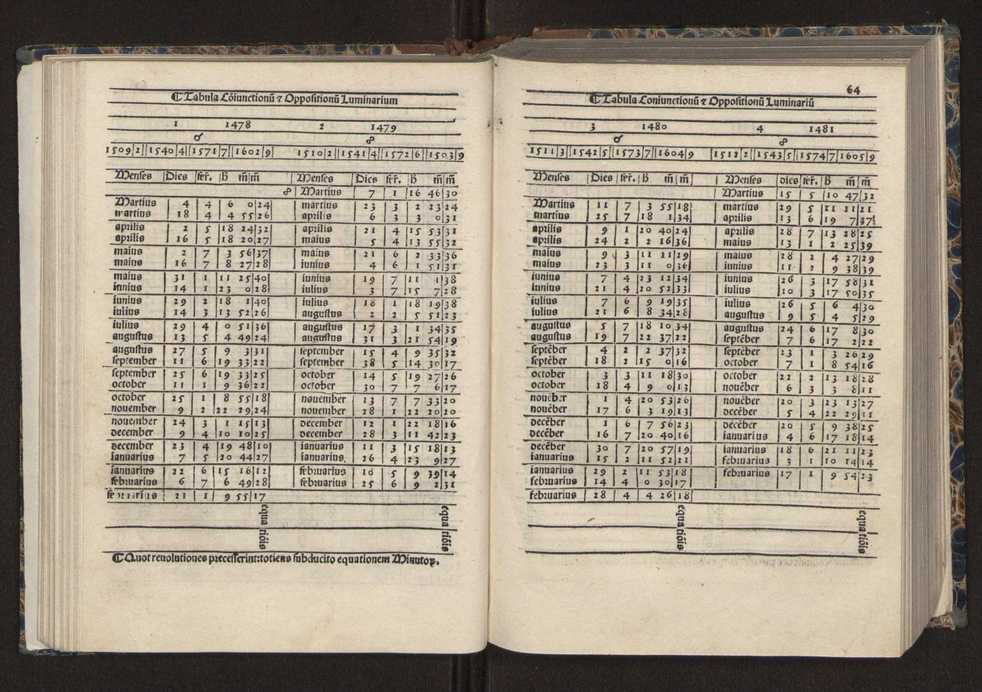 ☾ Tabula Cōiunctionū ⁊ Oppositionū Luminarium
1 1478 2 1479
☌ ☍
1509 2 1540 4 1571 7 1602 9 1510 2 1541 4 1572 6 1503 9
Menses Dies fer. H m̄ m̄ Menses Dies fer. H m̄ m̄
☍ Martius 7 1 16 46 30
Martius 4 4 6 0 24 martius 23 3 2 23 24
martius 18 4 4 55 26 aprilis 6 3 3 0 31
aprilis 2 5 18 24 32 aprilis 21 4 15 53 31
aprilis 16 5 18 20 27 maius 5 4 13 55 32
maius 2 7 3 56 37 maius 21 6 2 33 36
maius 16 7 8 27 28 iunius 4 6 1 51 31
maius 31 1 11 25 40 iunius 19 7 11 1 38
iunius 14 1 23 0 28 iulius 3 7 15 7 28
iunius 29 2 18 1 40 iulius 18 1 18 19 38
iulius 14 3 13 52 26 augustus 2 2 5 51 23
iulius 29 4 0 51 36 augustus 17 3 1 34 35
augustus 13 5 4 49 24 augustus 31 3 21 54 19
augustus 27 5 9 3 31 september 15 4 9 35 32
september 11 6 19 33 22 september 38 5 14 30 17
september 25 6 19 33 25 october 14 5 19 27 26
october 11 1 9 36 22 october 30 7 7 6 17
october 25 1 8 55 18 nouember 13 7 7 33 20
nouember 9 2 22 29 24 nouember 28 1 22 20 20
nouember 24 3 1 15 13 december 12 1 22 18 16
december 9 4 10 10 25 december 28 3 11 42 23
december 23 4 19 48 10 ianuarius 11 3 15 18 13
ianuarius 7 5 20 44 27 ianuarius. 26 4 23 9 27
ianuarius 22 6 15 16 12 februarius 10 5 9 39 14
februarius 6 7 6 49 28 februarius 25 6 9 2 31
februarius 21 1 9 55 17
equa tiōis equa tiōis
☾ Quot reuolutiones precesserint: totiens subducito equationem Minutoꝝ.
64
☾ Tabula Coniunctionū ⁊ Oppositionū Luminariū
3 1480 4 1481
☌ ☍
1511 3 1542 5 1573 7 1604 9 1512 2 1543 5 1574 7 1605 9
Menses Dies fer. H m̄ m̄ Menses dies fer. H m̄ m̄
Martius 15 5 10 47 32
Martius 11 7 3 55 18 martius 29 5 11 11 21
martius 25 7 18 1 34 aprilis 13 6 19 7 37
aprilis 9 1 20 40 24 aprilis 28 7 13 28 25
aprilis 24 2 2 16 36 maius 13 1 2 25 39
maius 9 3 11 21 29 maius 28 2 4 27 29
maius 23 3 11 0 36 iunius 11 2 9 38 39
iunius 7 4 23 12 34 iunius 26 3 17 58 31
iunius 21 4 20 52 33 iulius 10 3 17 50 35
iulius 7 6 9 19 35 iulius 26 5 6 4 30
iulius 21 6 8 34 28 augustus 9 5 4 5 29
augustus 5 7 18 10 34 augustus 24 6 17 8 30
augustus 19 7 22 37 22 septēber 7 6 17 2 22
septēber 4 2 2 37 32 septēber 23 1 3 26 29
septēber 18 2 15 0 16 october 7 1 8 54 16
october 3 3 11 18 30 october 22 2 13 18 28
october 18 4 9 0 13 nouēber 6 3 3 8 11
nouēber 1 4 20 53 26 nouēber 20 3 23 13 27
nouēber 17 6 3 19 13 decēber 5 4 22 29 11
decēber 1 6 7 56 23 decēber 20 5 9 38 25
decēber 16 7 20 40 16 ianuarius 4 6 17 18 14
decēber 30 7 20 57 19 ianuarius 18 6 21 11 23
ianuarius 15 2 11 52 21 februarius 3 1 10 14 14
ianuarius 29 2 11 53 18 februarius 17 1 9 54 23
februarius 14 4 0 30 17
februarius 28 4 4 26 18
equa tiōis equa tiōis